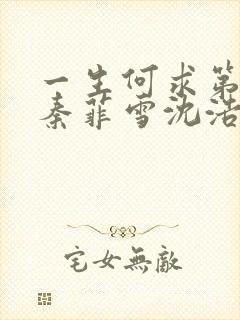 一生何求第
秦菲雪沈浩
宅女無敵